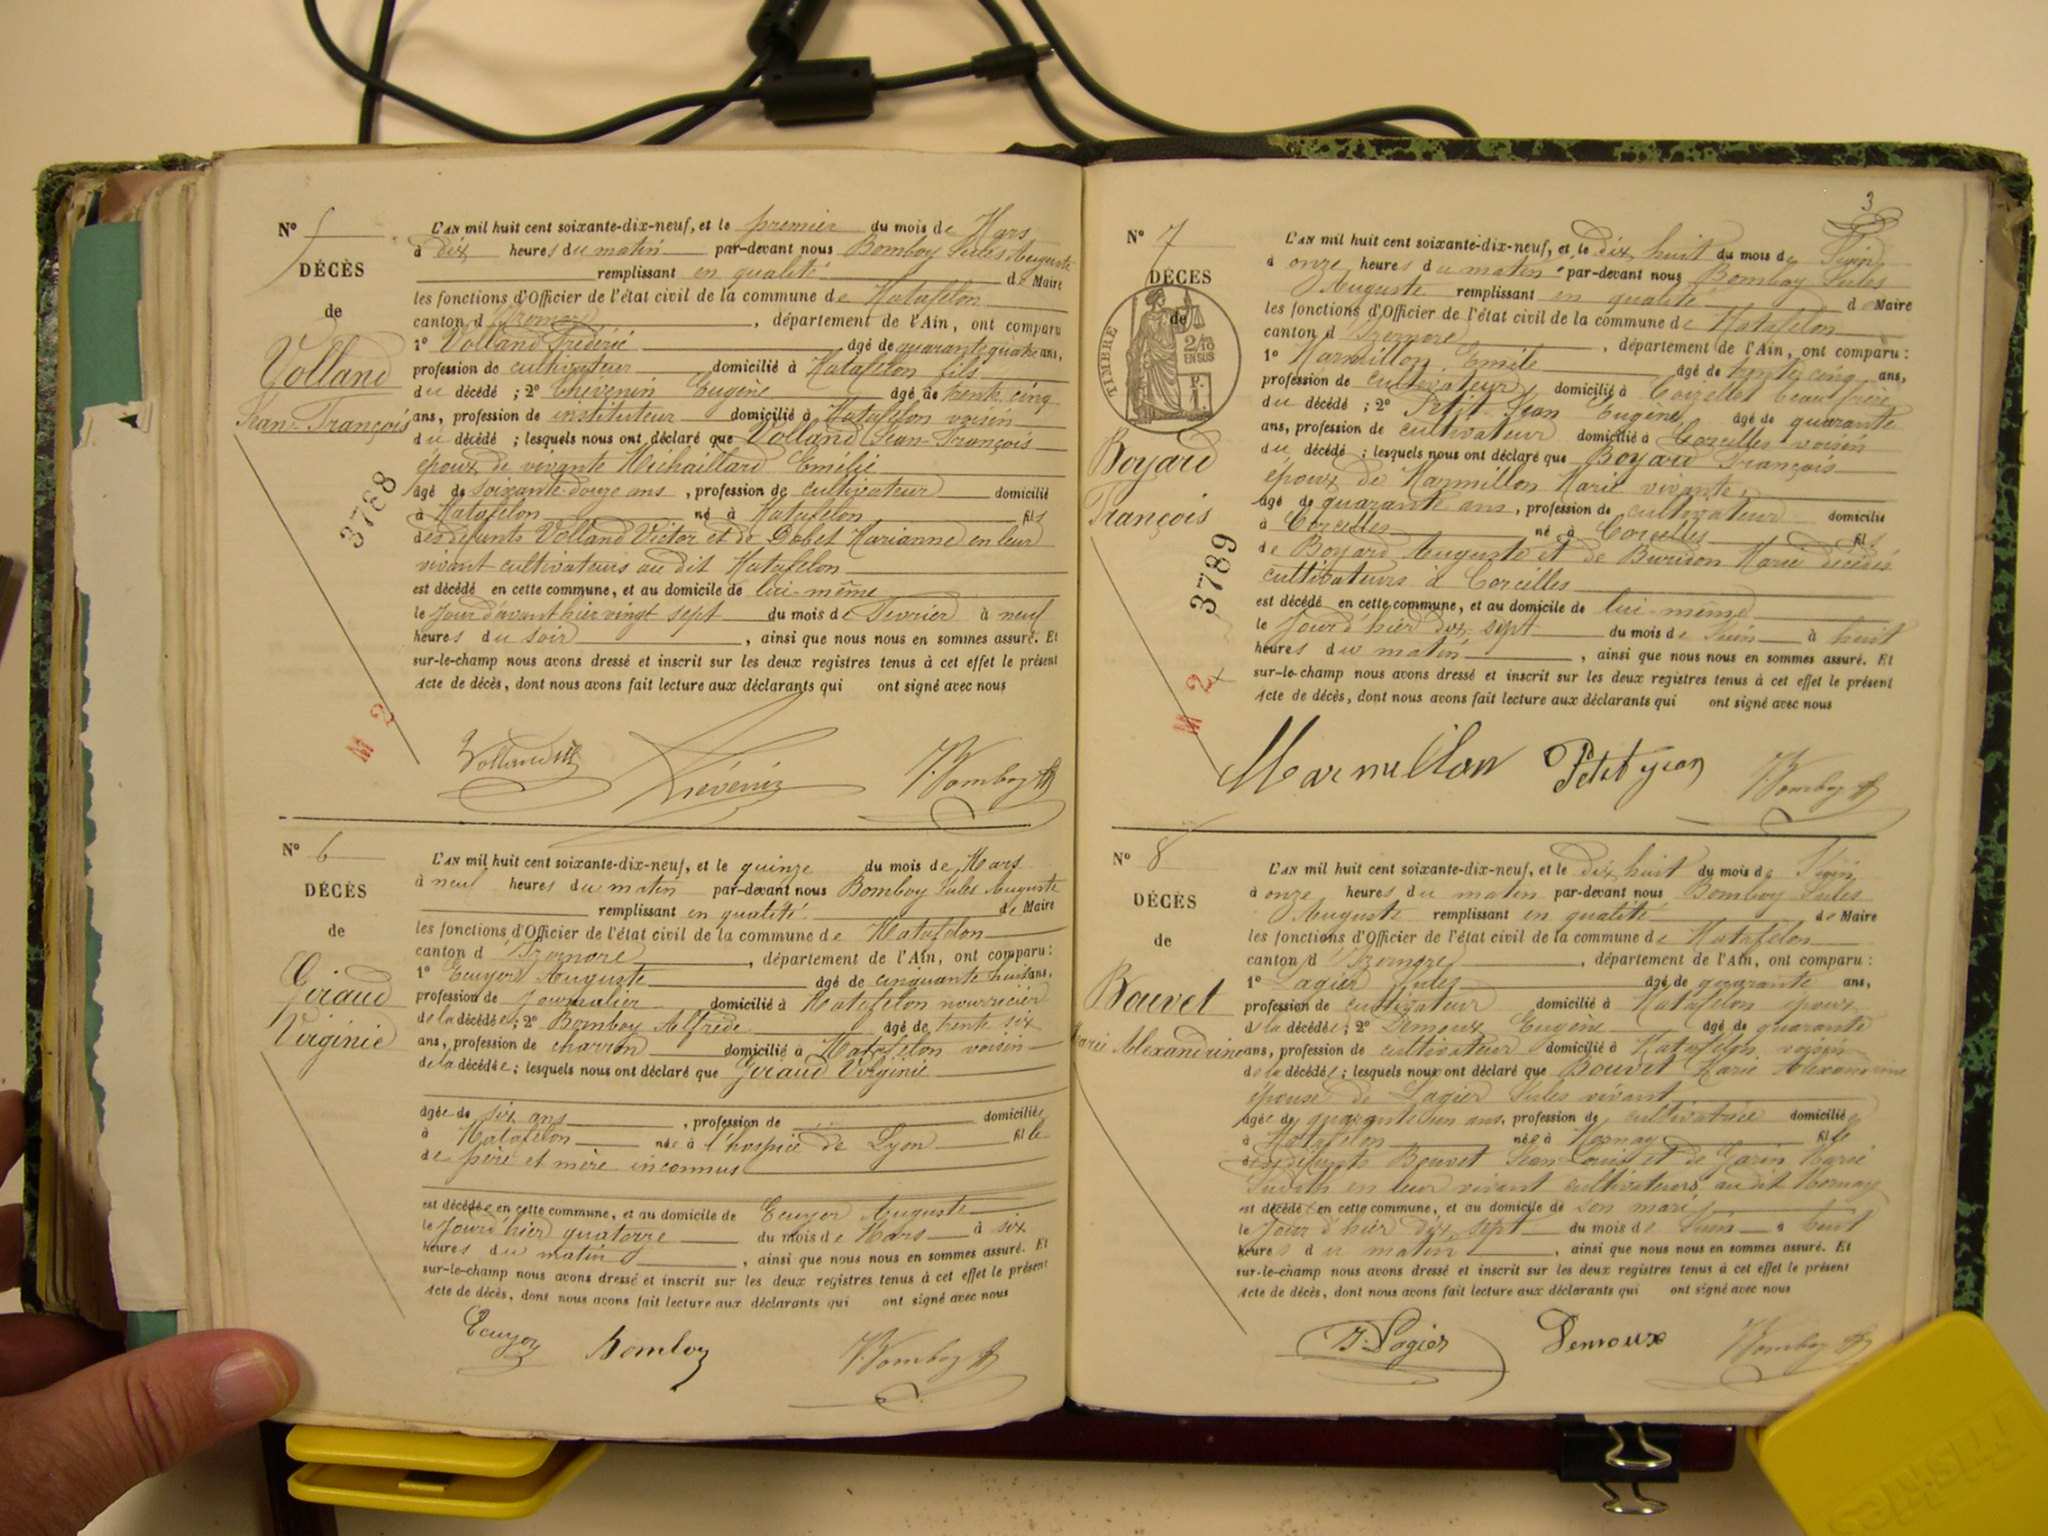 N° 5
DÉCÈS
de
Volland
Jean-François
3788
M 2
L'AN mil huit cent soixante-dix-neuf, et le premier du mois de Mars
à dix heures du matin par-devant nous Bomboy Jules Auguste
remplissant en qualité de Maire
les fonctions d'Officier de l'état civil de la commune de Matafelon
canton d'Izernore, département de l'Ain, ont comparu
1° Volland Frédéric âgé de quarante quatre ans,
profession de cultivateur domicilié à Matafelon fils
du décédé ; 2° Thévenin Eugène âgé de trente cinq
ans, profession de instituteur domicilié à Matafelon voisin
du décédé ; lesquels nous ont déclaré que Volland Jean-François
époux de vivante Michaillard Emélie
âgé de soixante-douze ans, profession de cultivateur domicilié
à Matafelon né à Matafelon fils
des défunts Volland Victor et de Dobet Marianne en leur
vivant cultivateurs au dit Matafelon
est décédé en cette commune, et au domicile de lui-même
le jour d'avant hier vingt sept du mois de Fevrier à neuf
heures du soir, ainsi que nous nous en sommes assuré. Et
sur-le-champ nous avons dressé et inscrit sur les deux registres tenus à cet effet le présent
Acte de décès, dont nous avons fait lecture aux déclarants qui ont signé avec nous
Volland fils Thévenin J. Bomboy
N° 6
DÉCÈS
de
Giraud
Virginie
L'AN mil huit cent soixante-dix-neuf, et le quinze du mois de Mars
à neuf heures du matin par-devant nous Bomboy Jules Auguste
remplissant en qualité de Maire
les fonctions d'Officier de l'état civil de la commune de Matafelon
canton d'Izernore, département de l'Ain, ont comparu :
1° Ecuyer Auguste âgé de cinquante huit ans,
profession de journalier domicilié à Matafelon nourricier
de la décédée ; 2° Bomboy Alfrède âgé de trente six
ans, profession de charron domicilié à Matafelon voisin
de la décédée ; lesquels nous ont déclaré que Giraud Virginie
âgée de six ans, profession de domiciliée
à Matafelon née à l'hospice de Lyon fille
de père et mère inconnus
est décédée en cette commune, et au domicile de Ecuyer Auguste
le jour d'hier quatorze du mois de Mars à six
heures du matin, ainsi que nous nous en sommes assuré. Et
sur-le-champ nous avons dressé et inscrit sur les deux registres tenus à cet effet le présent
Acte de décès, dont nous avons fait lecture aux déclarants qui ont signé avec nous
Ecuyer Bomboy J. Bomboy
3
N° 7
DÉCÈS
de
TIMBRE
2/10
EN SUS
Boyard
François
3789
M 2
L'AN mil huit cent soixante-dix-neuf, et le dix huit du mois de Juin
à onze heures du matin par-devant nous Bomboy Jules
Auguste remplissant en qualité de Maire
les fonctions d'Officier de l'état civil de la commune de Matafelon
canton d'Izernore, département de l'Ain, ont comparu :
1° Marmillon Emile âgé de trente cinq ans,
profession de cultivateur domicilié à Corcelles beau frère
du décédé ; 2° Petit-Jean Eugène âgé de quarante
ans, profession de cultivateur domicilié à Corcelles voisin
du décédé ; lesquels nous ont déclaré que Boyard François
époux de Marmillon Marie vivante
âgé de quarante ans, profession de cultivateur domicilié
à Corcelles né à Corcelles fils
de Boyard Auguste et de Burdon Marie décédés
cultivateurs à Corcelles
est décédé en cette commune, et au domicile de lui-même
le jour d'hier dix-sept du mois de Juin à huit
heures du matin, ainsi que nous nous en sommes assuré. Et
sur-le-champ nous avons dressé et inscrit sur les deux registres tenus à cet effet le présent
Acte de décès, dont nous avons fait lecture aux déclarants qui ont signé avec nous
Marmillon Petitjean J. Bomboy
N° 8
DÉCÈS
de
Bouvet
Marie Alexandrine
L'AN mil huit cent soixante-dix-neuf, et le dix huit du mois de Juin
à onze heures du matin par-devant nous Bomboy Jules
Auguste remplissant en qualité de Maire
les fonctions d'Officier de l'état civil de la commune de Matafelon
canton d'Izernore, département de l'Ain, ont comparu :
1° Lagier Jules âgé de quarante ans,
profession de cultivateur domicilié à Matafelon époux
de la décédée ; 2° Demoux Eugène âgé de quarante
ans, profession de cultivateur domicilié à Matafelon voisin
de la décédée ; lesquels nous ont déclaré que Bouvet Marie Alexandrine
épouse de Lagier Jules vivant
âgée de quarante un ans, profession de cultivatrice domiciliée
à Matafelon née à Mornay fille
des défunts Bouvet Jean Louis et de Garin Marie
Judith en leur vivant cultivateurs au dit Mornay
est décédée en cette commune, et au domicile de son mari
le jour d'hier dix sept du mois de Juin à huit
heures du matin, ainsi que nous nous en sommes assuré. Et
sur-le-champ nous avons dressé et inscrit sur les deux registres tenus à cet effet le présent
Acte de décès, dont nous avons fait lecture aux déclarants qui ont signé avec nous
J. Lagier Demoux J. Bomboy